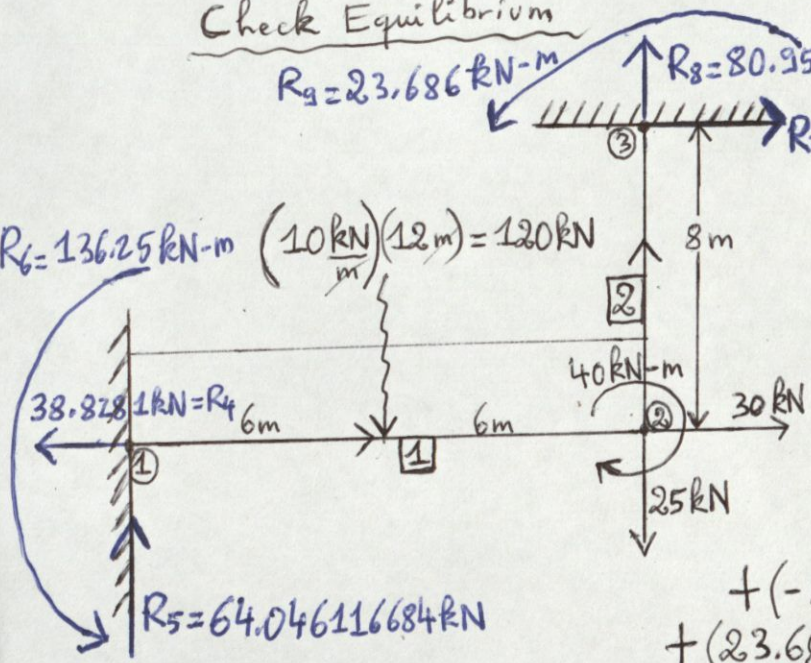 Check Equilibrium
R9=23.686kN-m
R8=80.95
③
R6=136.25kN-m
(10kN/m)(12m)=120kN
8m
2
40kN-m
38.8281kN=R4
6m
6m
②
30kN
①
1
25kN
R5=64.046116684kN
+(-
+(23.6